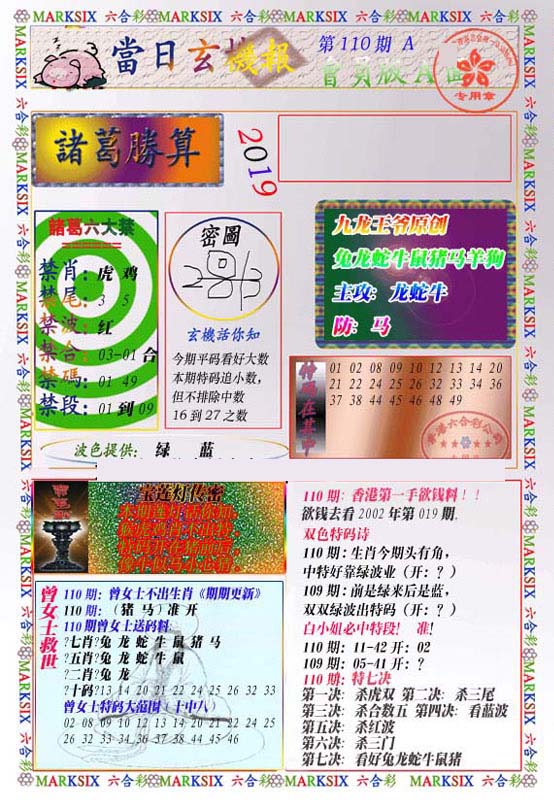 MARKSIX 六合彩 MARKSIX 六合彩 MARKSIX 六合彩 MARKSIX
當日玄機報
第110期 A
會員版A面
专用章
諸葛勝算
2019
諸葛六大禁
禁肖: 虎 鸡
禁尾: 3 5
禁波: 红
禁合: 03-01合
禁碼: 01 49
禁段: 01到09
密圖
玄機話你知
今期平码看好大数
本期特码追小数,
但不排除中数
16到27之数
九龙王爷原创
兔龙蛇牛鼠猪马羊狗
主攻: 龙蛇牛
防: 马
特码在其中
01 02 08 09 10 12 13 14 20
21 22 24 25 26 32 33 34 36
37 38 49 45 46 48 49
波色提供: 绿 蓝
宝莲灯传密
曾女士救世
110期:曾女士不出生肖《期期更新》
110期:(猪 马)准开
110期曾女士送码料:
?七肖?兔 龙 蛇 牛 鼠 猪 马
?五肖?兔 龙 蛇 牛 鼠
?二肖?兔 龙
?十码?13 14 20 21 22 24 25 26 32 33
曾女士特码大范围(十中八)
02 08 09 10 12 13 14 20 21 22 24 25
26 32 33 34 36 37 38 44 45 46
110期:香港第一手欲钱料!!
欲钱去看2002年第019期.
双色特码诗
110期:生肖今期头有角,
中特好靠绿波业(开:?)
109期:前是绿来后是蓝,
双双绿波出特码(开:?)
白小姐必中特段! 准!
110期: 11-42开: 02
109期: 05-41开: ?
110期: 特七决
第一决: 杀虎双 第二决: 杀三尾
第三决: 杀合数五 第四决: 看蓝波
第五决: 杀红波
第六决: 杀三门
第七决: 看好兔龙蛇牛鼠猪
MARKSIX 六合彩 MARKSIX 六合彩 MARKSIX 六合彩 MARKSIX